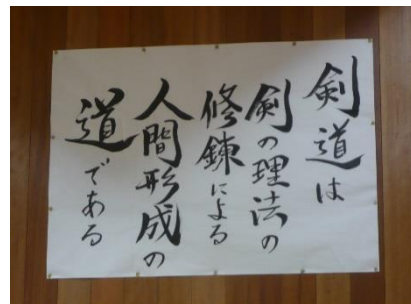 剣道は
剣の理法の
修錬による
人間形成の
道である